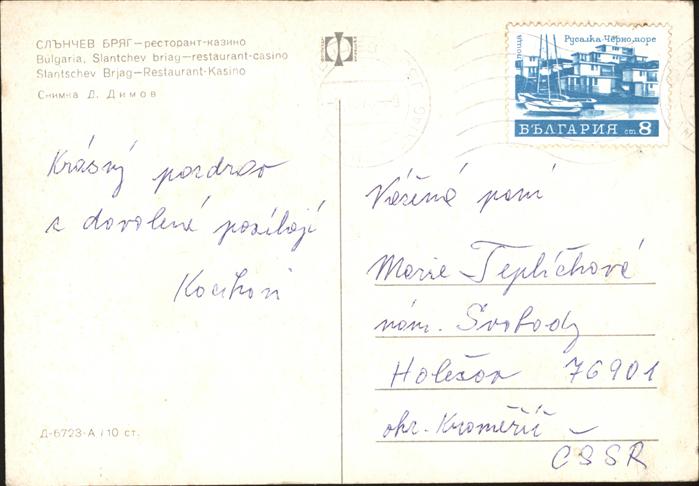 СЛЪНЧЕВ БРЯГ—ресторант-казино
Bulgaria, Slantchev briag—restaurant-casino
Slantschev Brjag—Restaurant-Kasino
Снимка Д. Димов
Krásný pozdrav
z dovolené posílají
Д-6723-А / 10 ст.
Русалка Черно море
поща
БЪЛГАРИЯ ст 8
Vážená paní
Marie Teplíchová
nám. Svobody
Holešov 76901
okr. Kroměříž
ČSSR